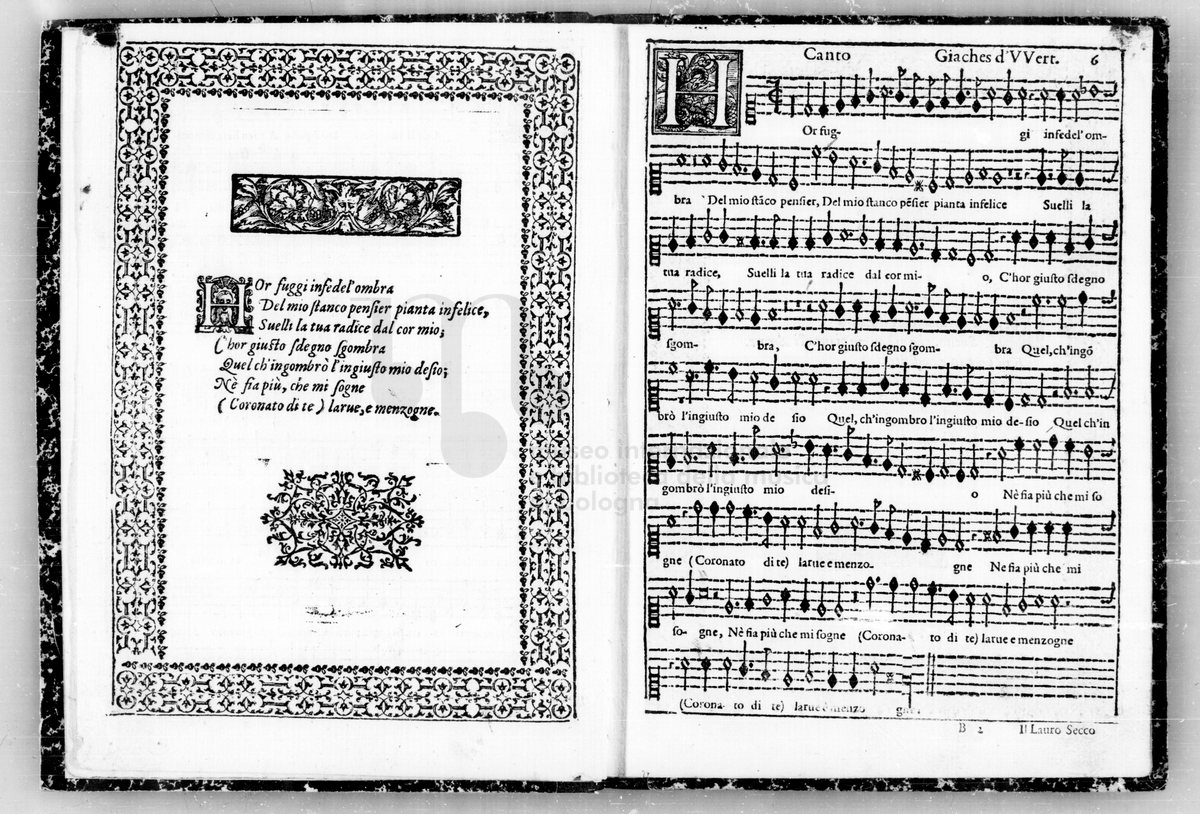 HOr fuggi infedel'ombra
Del mio stanco pensier pianta infelice,
Suelli la tua radice dal cor mio;
C'hor giusto sdegno sgombra
Quel ch'ingombrò l'ingiusto mio desio;
Nè fia più, che mi sogne
(Coronato di te) larue, e menzogne.
Canto Giaches d'VVert. 6
HOr fug- gi infedel'om-
bra Del mio stãco pensier, Del mio stanco pẽsier pianta infelice Suelli la
tua radice, Suelli la tua radice dal cor mi- o, C'hor giusto sdegno
sgom- bra, C'hor giusto sdegno sgom- bra Quel, ch'ingõ
brò l'ingiusto mio de sio Quel, ch'ingombro l'ingiusto mio de-sio Quel ch'in
gombrò l'ingiusto mio desi- o Nè fia più che mi so
gne (Coronato di te) larue e menzo- gne Ne fia più che mi
so- gne, Nè fia più che mi sogne (Corona- to di te) larue e menzogne
(Corona- to di te) larue e menzo gne.
B 2 Il Lauro Secco
museo internazionale
biblioteca della musica
bologna